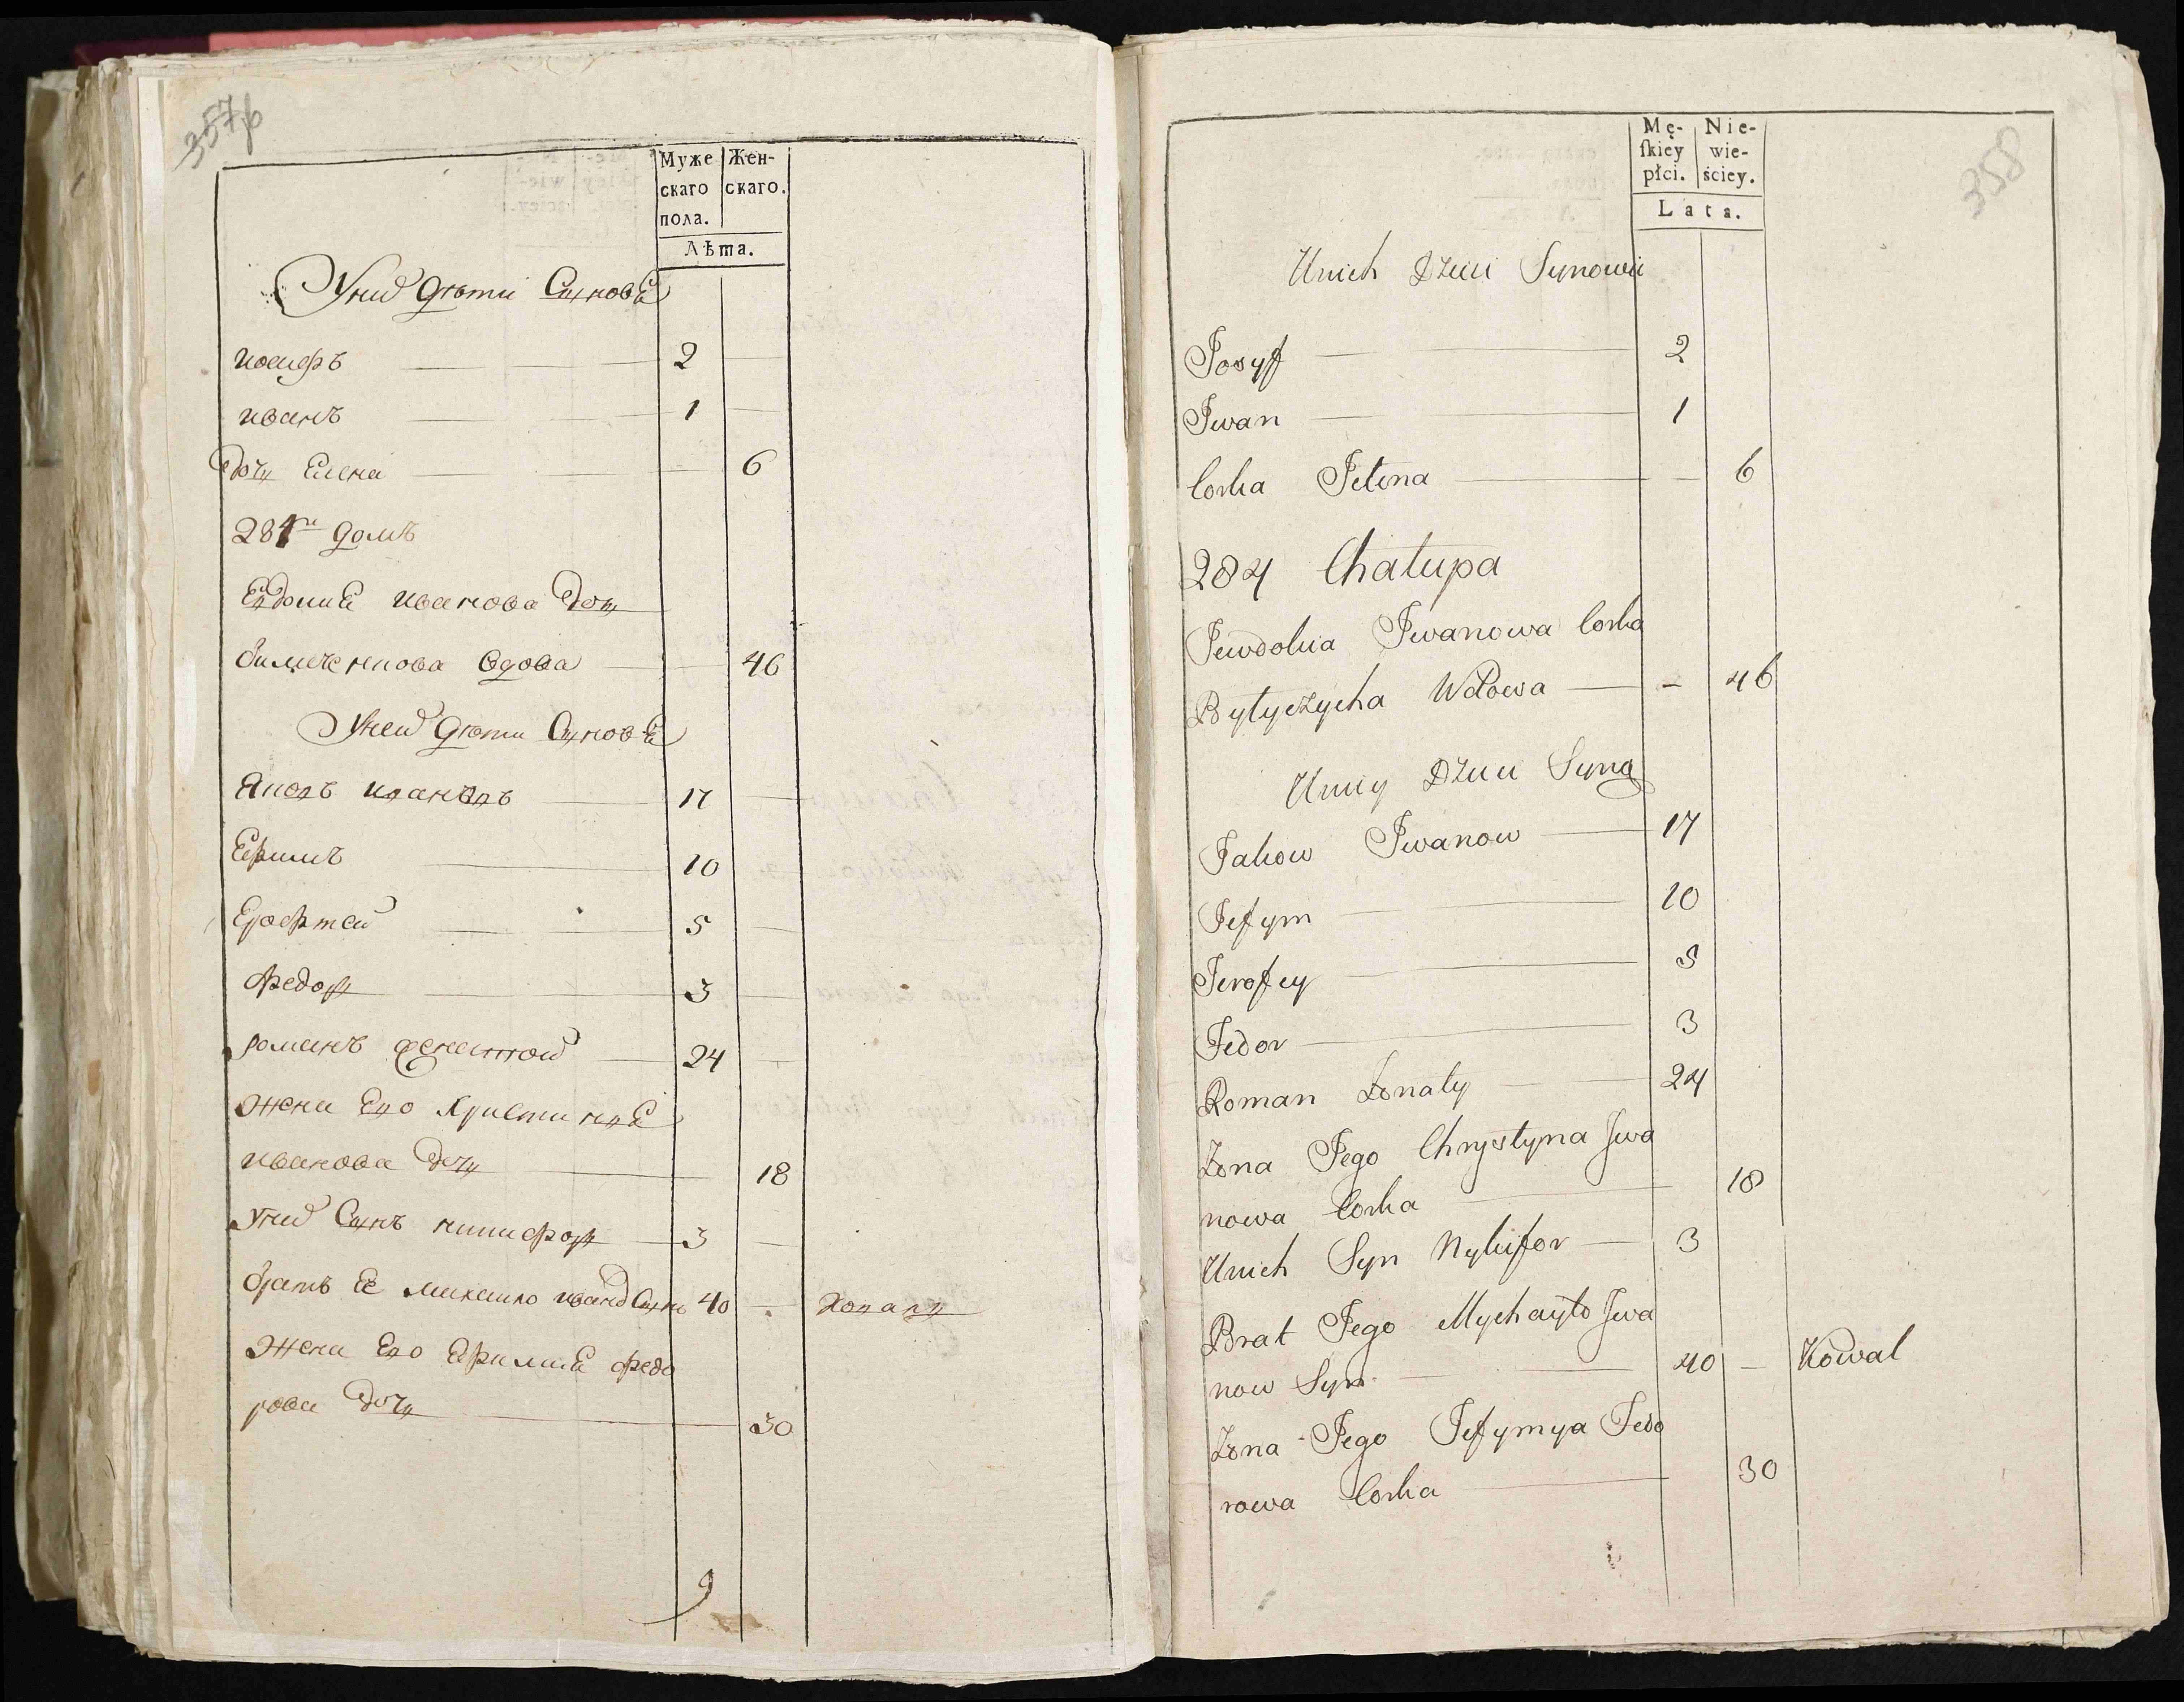 357б
Муже Жен-
скаго скаго.
пола.
Лѣта.
У них дѣти Синове
иосифъ 2
иванъ 1
доч Елена 6
284 домъ
Евдокиѣ иванова доч
вдова 46
У неи дѣти Синове
Яковъ ивановъ 17
Ефимъ 10
Ерофтей 5
федор 3
романъ женатой 24
жена Его Христиниѣ
иванова доч 18
У них Синъ никифор 3
братъ Ее михаило иванов Синъ 40 коваль
жена Его Ефимиѣ федо
рова доч 30
9
358
Mę- Nie-
ſkiey wie-
płci. ściey.
Lata.
Unich Dzieci Synowie
Josyf 2
Iwan 1
Corka Jelena 6
284 Chałupa
Jewdokia Iwanowa Corka
Bytyczycha Wdowa - 46
Uniey Dzieci Syny
Jakow Iwanow 17
Jefym 10
Jerofey 5
Fedor 3
Roman Żonaty 24
Żona Jego Chrystyna Iwa
nowa Corka 18
Unich Syn Nykifor 3
Brat Jego Mychayło Iwa
now Syn 40 - Kowal
Żona Jego Jefymya Fedo
rowa Corka 30